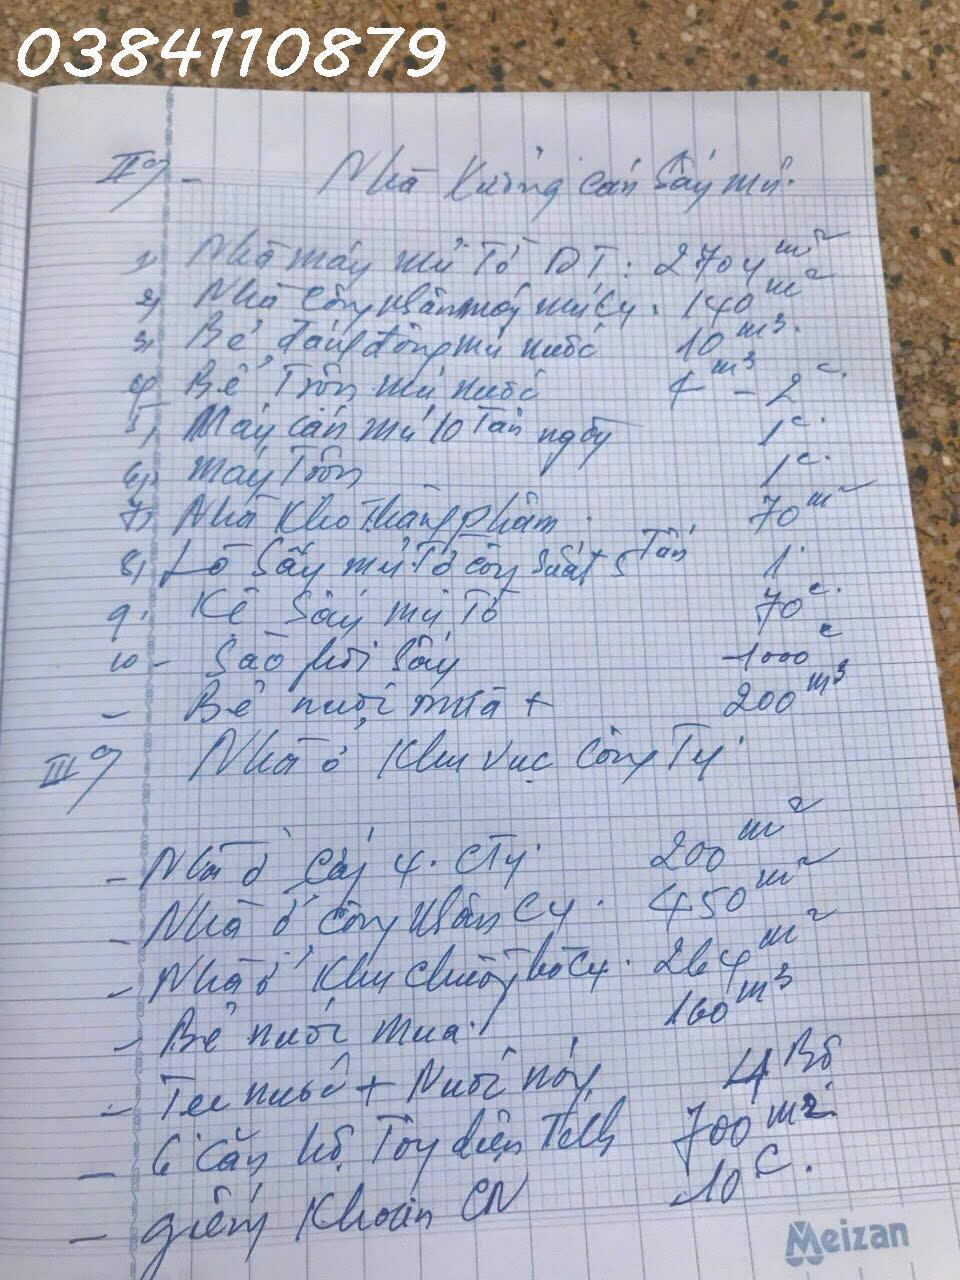 0384110879
II - Nhà xưởng cán sấy mủ.
1, Nhà máy mủ Tờ DT: 2704 m2
2, Nhà công nhân máy mủ Cty. 140 m2
3, Bể đánh đông mủ nước 10 m3.
4, Bể Trộn mủ nước 4 m3 - 2 c.
5, Máy cán mủ 10 Tấn ngày 1 c.
6, Máy Trộn 1 c.
7, Nhà Kho Thành phẩm. 70 m2
8, Lò sấy mủ Tờ công suất 5 Tấn 1
9. Kệ Sấy mủ Tờ 70 c.
10 - Sào phơi sấy 1000 c
- Bể nước mưa + 200 m3
III Nhà ở Khu vực Công Ty
- Nhà ở Cấp 4. CTy. 200 m2
- Nhà ở công nhân Cty. 450 m2
- Nhà ở Khu chuồng bò Cty. 264 m2
- Bể nước mưa. 160 m3
- Tec nước + Nước nóng 4 Bộ
- 6 Căn hộ 700 m2
- giếng Khoan CN 10 C.
Meizan